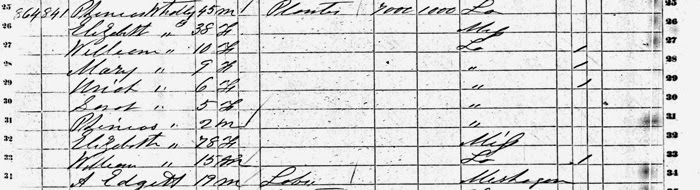 25 864 841 Phineas Whatley 45 m / Planter 7000 1000 La 25
26 Elizabeth " 38 f Miss 26
27 William " 10 f La / 27
28 Mary " 9 f " / 28
29 6 f " / 29
30 Sarah " 5 f " 30
31 Phineas " 2 m / "
32 Elizabeth " 78 f Miss 32
33 William " 15 m / La / 33
A Edgett 19 m / Labor Michigan 34